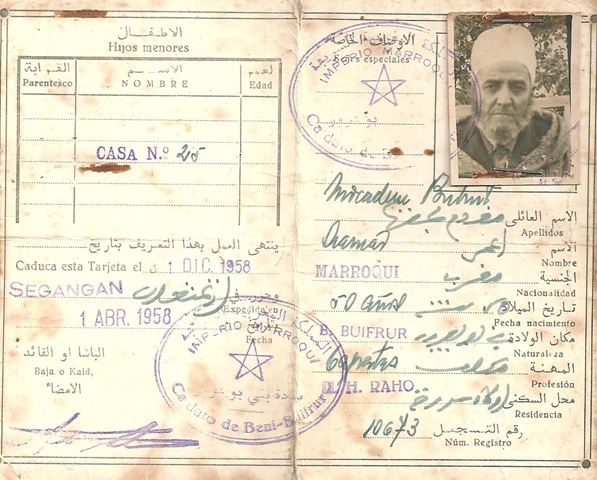 الاطفـــال
Hijos menores
القرابة
الاســـم
العمر
Parentesco
NOMBRE
Edad
CASA N.º 25
ينتهى العمل بهذا التعريف بتاريخ
Caduca esta Tarjeta el 31 DIC. 1958
SEGANGAN
وحرر في
Expedida en
1 ABR. 1958
Fecha
الباشا او القائد
Baja o Kaid,
الامضاء
IMPERIO MARROQUI
Caidato de Beni-Buifrur
الاوصاف الخاصة
especiales
IMPERIO MARROQUI
Caidato de
الاسم العائلى
Apellidos
الاسم
Nombre
MARROQUI
الجنسية
Nacionalidad
50 años
تاريخ الميلاد
Fecha nacimiento
B. BUIFRUR
مكان الولادة
Naturaleza
المهنة
Profesión
H. RAHO
محل السكنى
Residencia
10673
رقم التسجيل
Núm. Registro